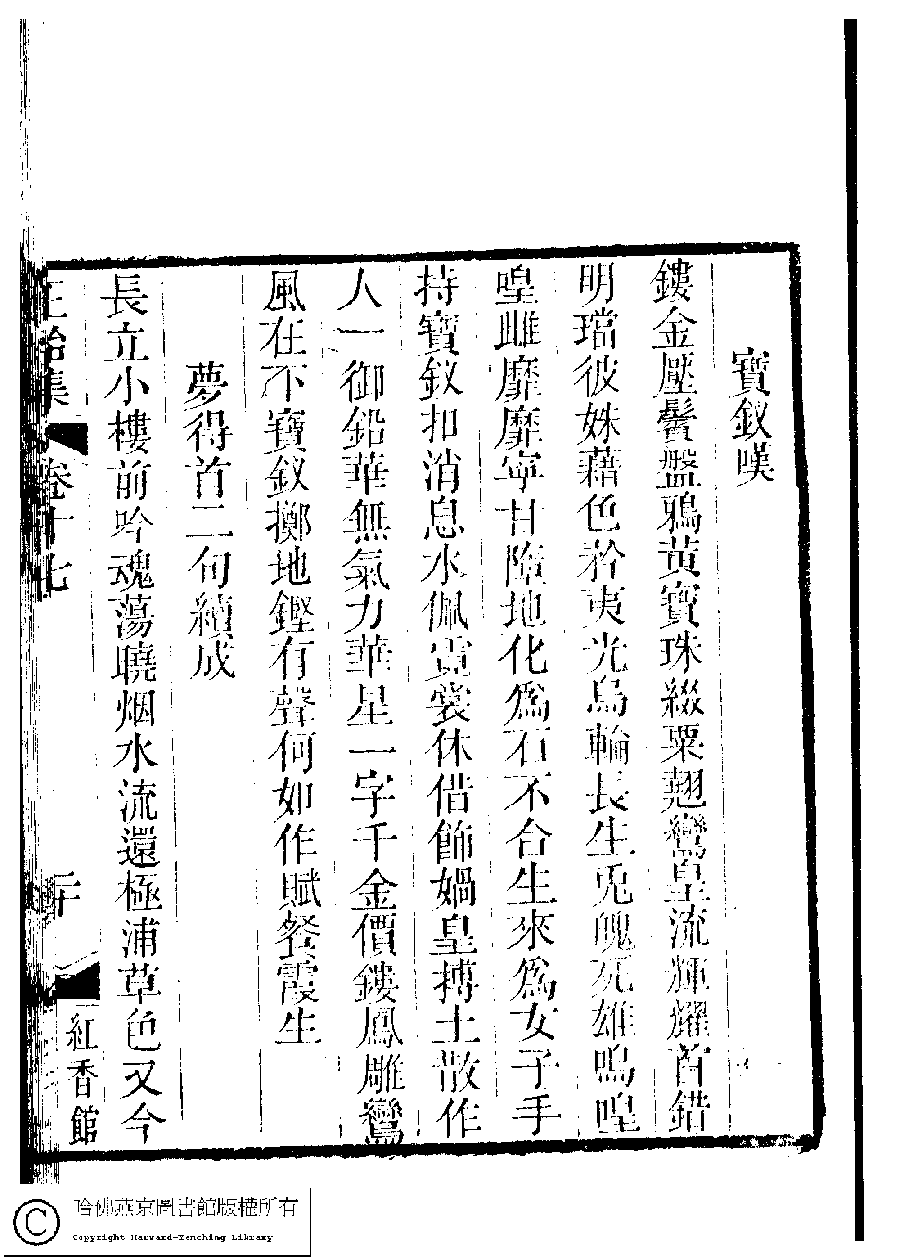 寶釵嘆
鏤金壓鬢盤鴉黃寶珠綴粟翹鸞皇流輝耀首錯
明璫彼姝藉色矜夷光烏輪長生兎魄死雄鳴喤
喤雌靡靡寧甘墮地化爲石不合生來爲女子手
持寶釵扣消息水佩雲裳休借飾媧皇摶土散作
人一御鉛華無氣力華星一字千金價鏤鳳雕鸞
風在下寶釵擲地鏗有聲何如作賦餐霞生
夢得首二句續成
長立小樓前吟魂蕩曉烟水流還極浦草色又今
正始集 卷十七 二十 紅香館
哈佛燕京圖書館版權所有
Copyright Harvard-Yenching Library